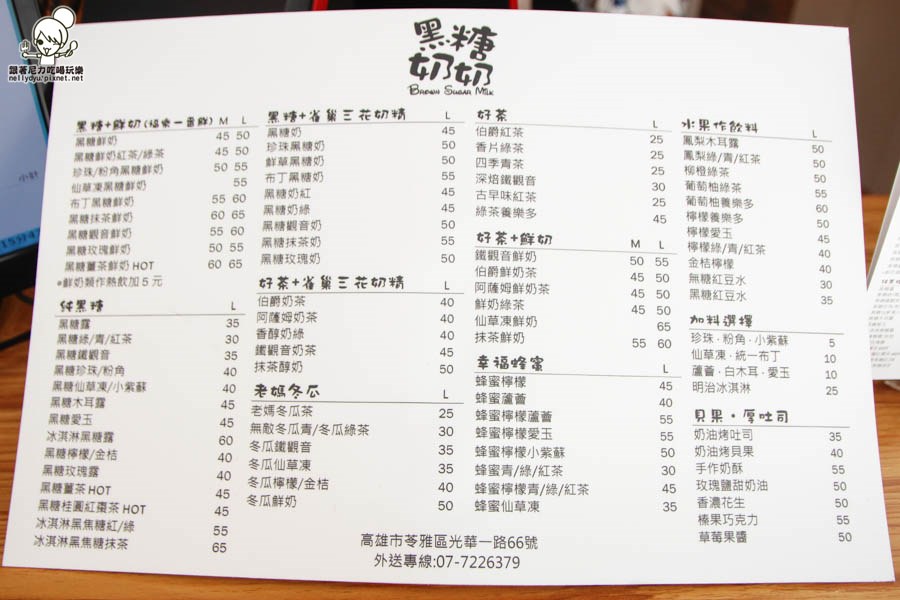 跟著尼力吃喝玩樂
nellydyu.pixnet.net
黑糖
奶奶
BROWN SUGAR MILK
黑糖+鮮奶(福樂一番鮮) M L
黑糖鮮奶 45 50
黑糖鮮奶紅茶/綠茶 45 50
珍珠/粉角黑糖鮮奶 50 55
仙草凍黑糖鮮奶 55
布丁黑糖鮮奶 55 60
黑糖抹茶鮮奶 60 65
黑糖觀音鮮奶 55 60
黑糖玫瑰鮮奶 50 55
黑糖薑茶鮮奶 HOT 60 65
*鮮奶類作熱飲加5元
純黑糖 L
黑糖露 35
黑糖綠/青/紅茶 30
黑糖鐵觀音 35
黑糖珍珠/粉角 40
黑糖仙草凍/小紫蘇 40
黑糖木耳露 45
黑糖愛玉 45
冰淇淋黑糖露 60
黑糖檸檬/金桔 40
黑糖玫瑰露 40
黑糖薑茶 HOT 40
黑糖桂圓紅棗茶 HOT 45
冰淇淋黑焦糖紅/綠 55
冰淇淋黑焦糖抹茶 65
黑糖+雀巢三花奶精 L
黑糖奶 45
珍珠黑糖奶 50
鮮草黑糖奶 50
布丁黑糖奶 55
黑糖奶紅 45
黑糖奶綠 45
黑糖觀音奶 50
黑糖抹茶奶 55
黑糖玫瑰奶 50
好茶+雀巢三花奶精 L
伯爵奶茶 40
阿薩姆奶茶 40
香醇奶綠 40
鐵觀音奶茶 45
抹茶醇奶 50
老媽冬瓜 L
老媽冬瓜茶 25
無敵冬瓜青/冬瓜綠茶 30
冬瓜鐵觀音 35
冬瓜仙草凍 35
冬瓜檸檬/金桔 40
冬瓜鮮奶 50
好茶 L
伯爵紅茶 25
香片綠茶 25
四季青茶 25
深焙鐵觀音 30
古早味紅茶 25
綠茶養樂多 45
好茶+鮮奶 M L
鐵觀音鮮奶 50 55
伯爵鮮奶茶 45 50
阿薩姆鮮奶茶 45 50
鮮奶綠茶 45 50
仙草凍鮮奶 65
抹茶鮮奶 55 60
幸福蜂蜜 L
蜂蜜檸檬 45
蜂蜜蘆薈 40
蜂蜜檸檬蘆薈 55
蜂蜜檸檬愛玉 55
蜂蜜檸檬小紫蘇 50
蜂蜜青/綠/紅茶 30
蜂蜜檸檬青/綠/紅茶 45
蜂蜜仙草凍 35
水果作飲料 L
鳳梨木耳露 50
鳳梨綠/青/紅茶 50
柳橙綠茶 50
葡萄柚綠茶 55
葡萄柚養樂多 60
檸檬養樂多 50
檸檬愛玉 45
檸檬綠/青/紅茶 40
金桔檸檬 40
無糖紅豆水 30
黑糖紅豆水 35
加料選擇
珍珠.粉角.小紫蘇 5
仙草凍.統一布丁 10
蘆薈.白木耳.愛玉 10
明治冰淇淋 25
貝果・厚吐司
奶油烤吐司 35
奶油烤貝果 40
手作奶酥 55
玫瑰鹽甜奶油 50
香濃花生 50
榛果巧克力 55
草莓果醬 50
高雄市苓雅區光華一路66號
外送專線:07-7226379